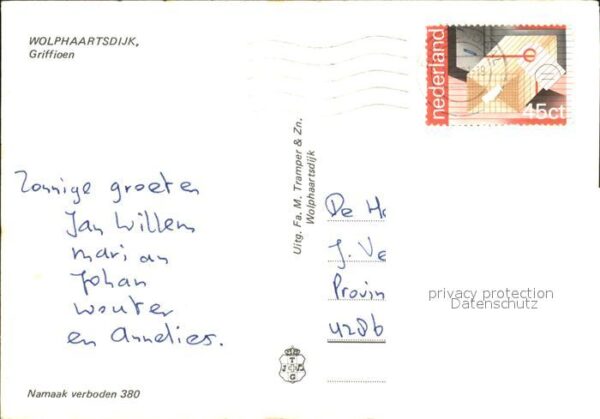 WOLPHAARTSDIJK,
Griffioen
nederland
45ct
Zonnige groeten
Jan Willem
marian
Johan
wouter
en Annelies.
Uitg. Fa. M. Tramper & Zn.
Wolphaartsdijk
De H
J. Ve
Provin
4286
privacy protection
Datenschutz
Namaak verboden 380